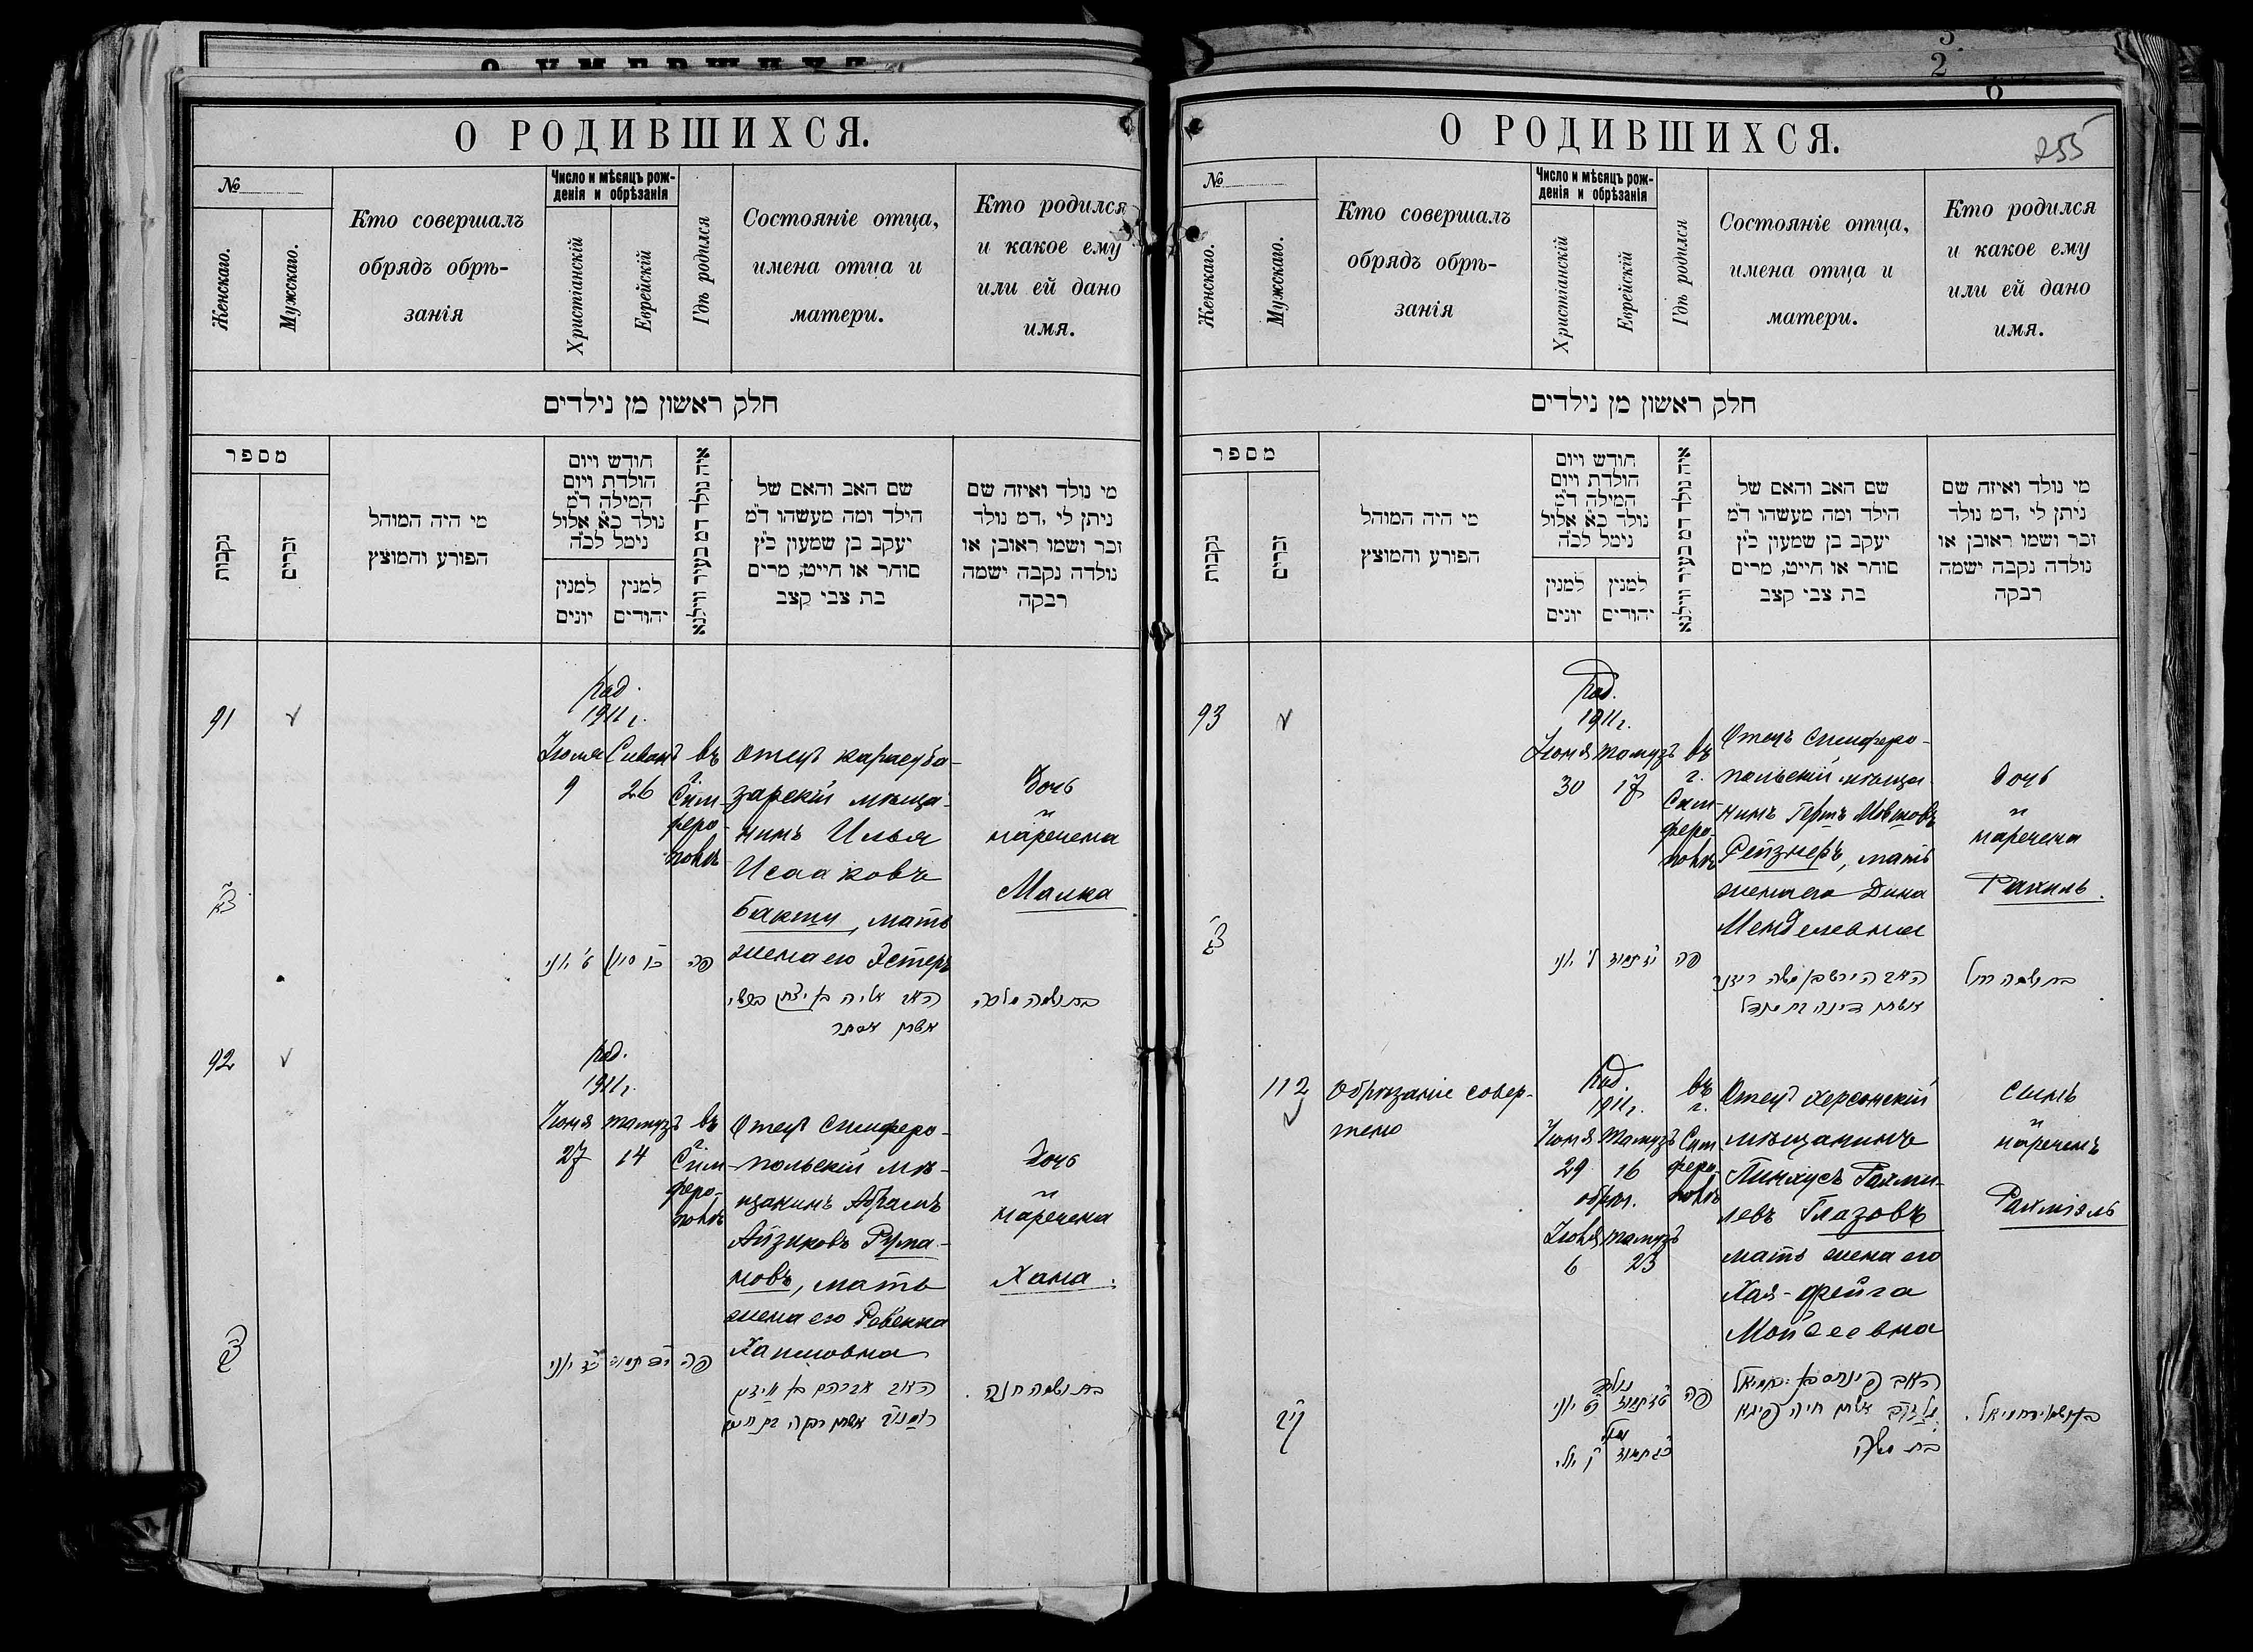 О РОДИВШИХСЯ.
№
Женскаго.
Мужскаго.
Кто совершалъ
обрядъ обрѣ-
занія
Число и мѣсяцъ рож-
денія и обрѣзанія
Христіанскій
Еврейскій
Гдѣ родился
Состояніе отца,
имена отца и
матери.
Кто родился
и какое ему
или ей дано
имя.
חלק ראשון מן נילדים
מספר
נקבות
זכרים
מי היה המוהל
הפורע והמוצץ
חודש ויום
הולדת ויום
המילה ד״מ
נולד כ״א אלול
נימל לכ״ה
למנין
יונים
למנין
יהודים
איה נולד דמ בעיר ווילנא
שם האב והאם של
הילד ומה מעשהו ד״מ
יעקב בן שמעון כ״ץ
סוחר או חייט, מרים
בת צבי קצב
מי נולד ואיזה שם
ניתן לי, דמ נולד
זכר ושמו ראובן או
נולדה נקבה ישמה
רבקה
91
род.
1911 г.
Сиванъ
9
26
въ
г.
Сим-
феро-
полѣ
Отецъ карасуба-
зарскій мѣща-
нинъ Илья
Исааковъ
Бакши, мать
жена его Эстеръ
Дочь
и
наречена
Малка
פה
אשתו אסתר
92
род.
1911 г.
Іюня
27
Тамузъ
14
въ
г.
Сим-
феро-
полѣ
Отецъ Симферо-
польскій мѣ-
щанинъ Абрамъ
Айзиковъ Рума-
новъ, мать
жена его Ревекка
Хаимовна
Дочь
и
наречена
Хана.
פה
О РОДИВШИХСЯ.
255
№
Женскаго.
Мужскаго.
Кто совершалъ
обрядъ обрѣ-
занія
Число и мѣсяцъ рож-
денія и обрѣзанія
Христіанскій
Еврейскій
Гдѣ родился
Состояніе отца,
имена отца и
матери.
Кто родился
и какое ему
или ей дано
имя.
חלק ראשון מן נילדים
מספר
נקבות
זכרים
מי היה המוהל
הפורע והמוצץ
חודש ויום
הולדת ויום
המילה ד״מ
נולד כ״א אלול
נימל לכ״ה
למנין
יונים
למנין
יהודים
איה נולד דמ בעיר ווילנא
שם האב והאם של
הילד ומה מעשהו ד״מ
יעקב בן שמעון כ״ץ
סוחר או חייט, מרים
בת צבי קצב
מי נולד ואיזה שם
ניתן לי, דמ נולד
זכר ושמו ראובן או
נולדה נקבה ישמה
רבקה
93
род.
1911 г.
Іюня
30
Тамузъ
17
въ
г.
Сим-
феро-
полѣ
Отецъ Симферо-
польскій мѣща-
нинъ Гершъ Мовшовъ
Рейзнеръ, мать
жена его Дина
Менделевна
Дочь
и
наречена
Рахиль.
פה
112
Обрѣзаніе совер-
шено
род.
1911 г.
Іюня
29
Тамузъ
16
обрѣз.
Іюля
6
Тамузъ
23
въ
г.
Сим-
феро-
полѣ
Отецъ Херсонскій
мѣщанинъ
Пинхусъ Рахми-
левъ Глазовъ
мать жена его
Хая-Фейга
Мойсеевна
Сынъ
и
нареченъ
Рахміэль
פה
בת משה